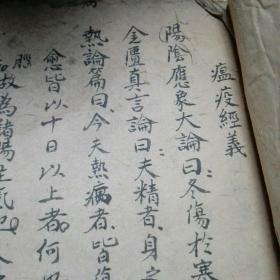 瘟疫經義
陽陰應象大論曰冬傷於寒
金匱真言論曰夫精者身之
熱論篇曰今夫熱病者皆傷
愈皆以十日以上者何
故為諸陽主氣也人